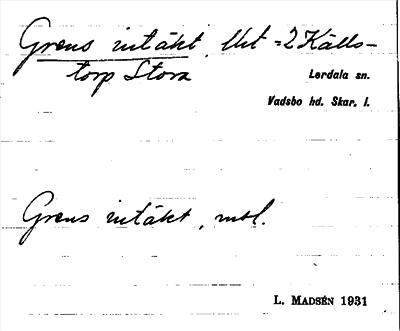 Grens intäkt, Urt =2 Källs-
torp Stora
Lerdala sn.
Vadsbo hd. Skar. l.
Grens intäkt, mbl.
L. MADSÉN 1931